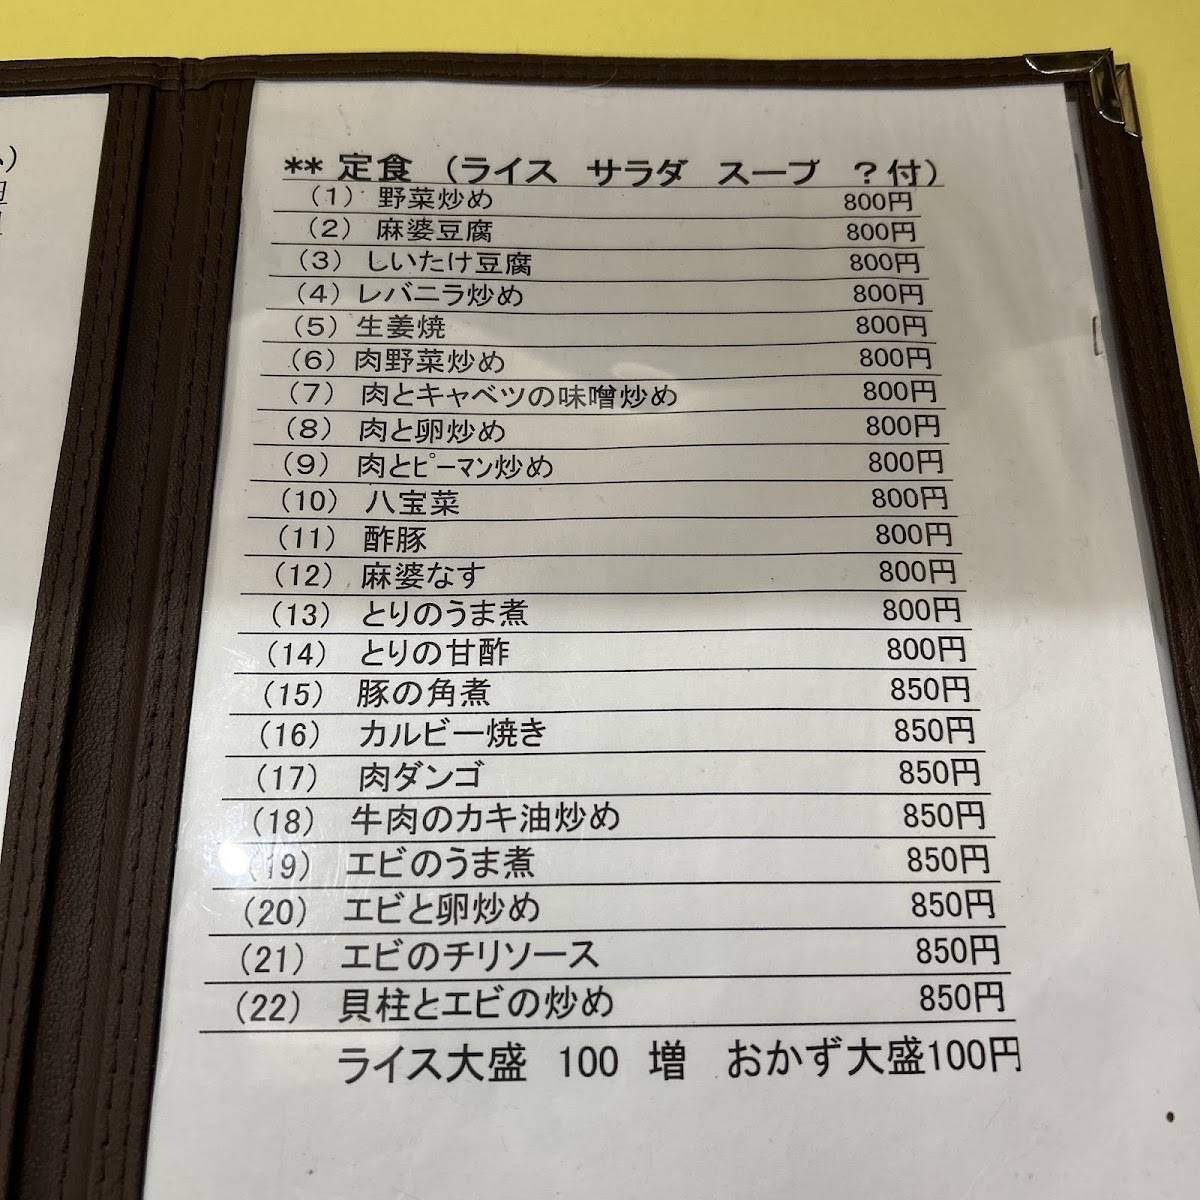 ** 定食 （ライス サラダ スープ ？付）
（1） 野菜炒め 800円
（2） 麻婆豆腐 800円
（3） しいたけ豆腐 800円
（4） レバニラ炒め 800円
（5） 生姜焼 800円
（6） 肉野菜炒め 800円
（7） 肉とキャベツの味噌炒め 800円
（8） 肉と卵炒め 800円
（9） 肉とﾋﾟｰﾏﾝ炒め 800円
（10） 八宝菜 800円
（11） 酢豚 800円
（12） 麻婆なす 800円
（13） とりのうま煮 800円
（14） とりの甘酢 800円
（15） 豚の角煮 850円
（16） カルビー焼き 850円
（17） 肉ダンゴ 850円
（18） 牛肉のカキ油炒め 850円
（19） エビのうま煮 850円
（20） エビと卵炒め 850円
（21） エビのチリソース 850円
（22） 貝柱とエビの炒め 850円
ライス大盛 100 増 おかず大盛100円